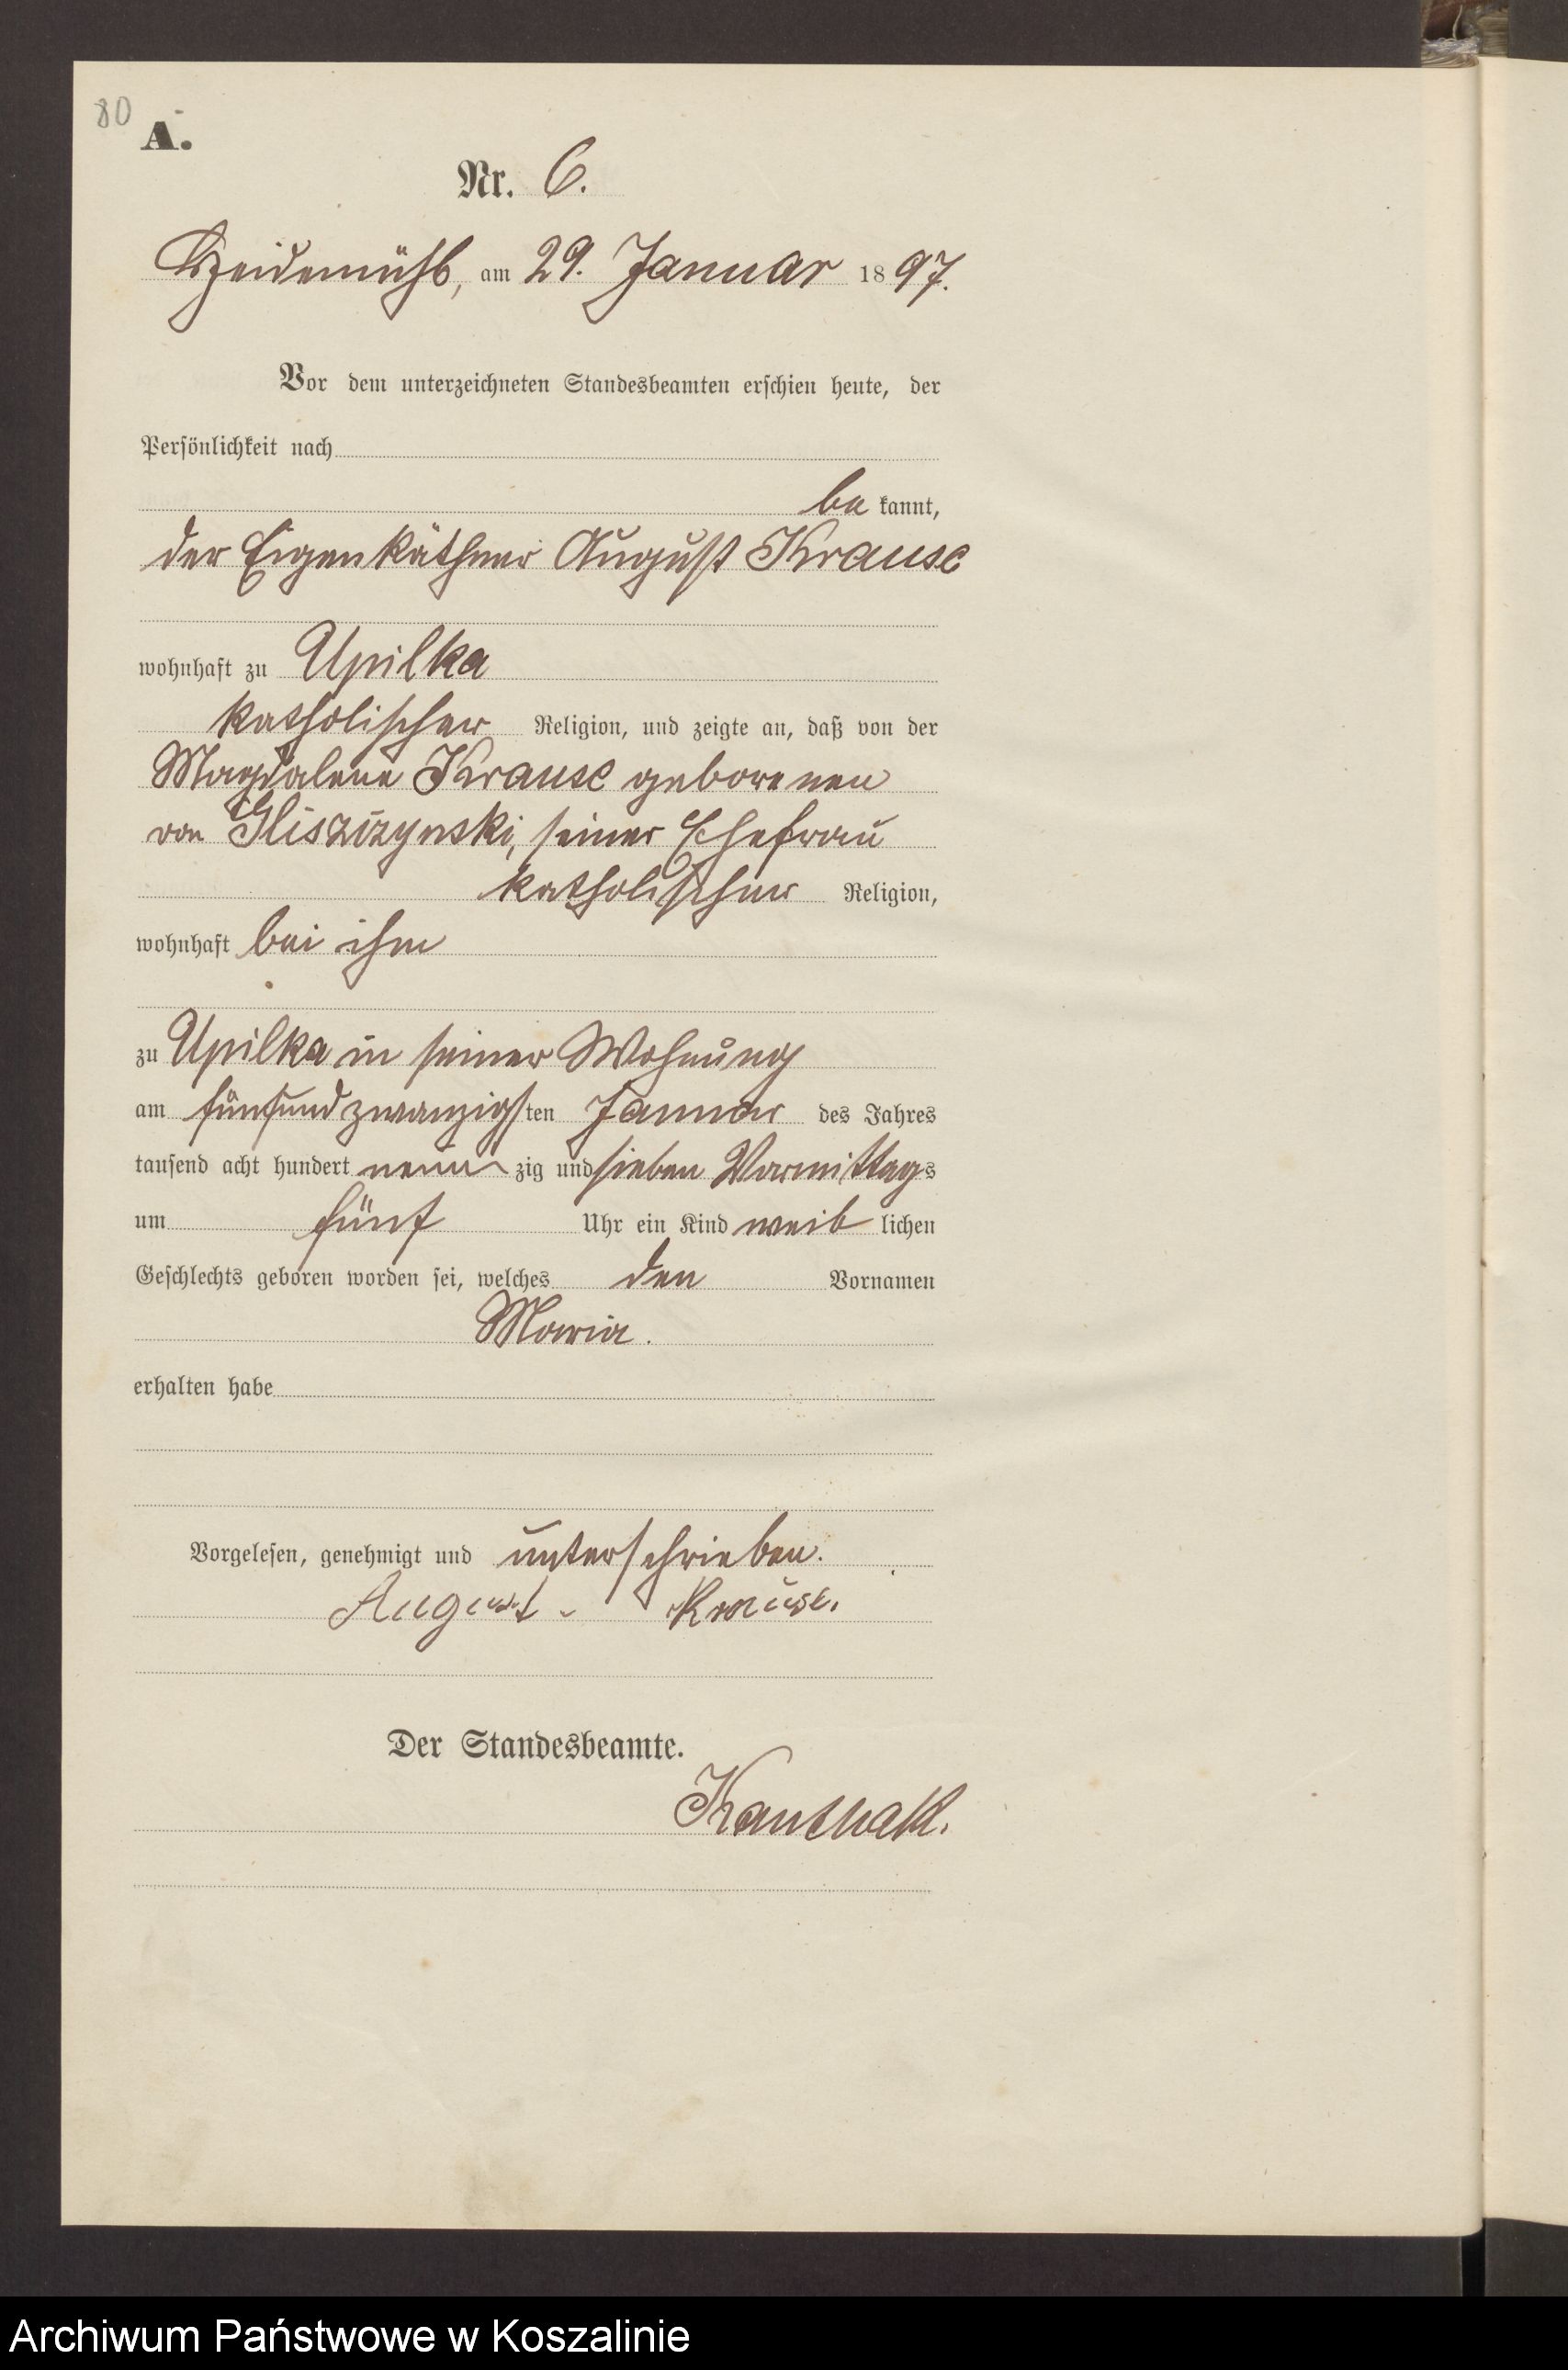 80
A.
Nr. 6.
Heidemühl, am 29. Januar 1897.
Vor dem unterzeichneten Standesbeamten erschien heute, der
Persönlichkeit nach
be kannt,
der Eigenkäthner August Krause
wohnhaft zu Upilka
katholischer Religion, und zeigte an, daß von der
Magdalena Krause geborenen
von Gliszczynski, seiner Ehefrau
katholischer Religion,
wohnhaft bei ihm
zu Upilka in seiner Wohnung
am fünfundzwanzigsten Januar des Jahres
tausend acht hundert neunzig und sieben Vormittags
um fünf Uhr ein Kind weiblichen
Geschlechts geboren worden sei, welches den Vornamen
Maria.
erhalten habe
Vorgelesen, genehmigt und unterschrieben.
August Krause.
Der Standesbeamte.
Archiwum Państwowe w Koszalinie